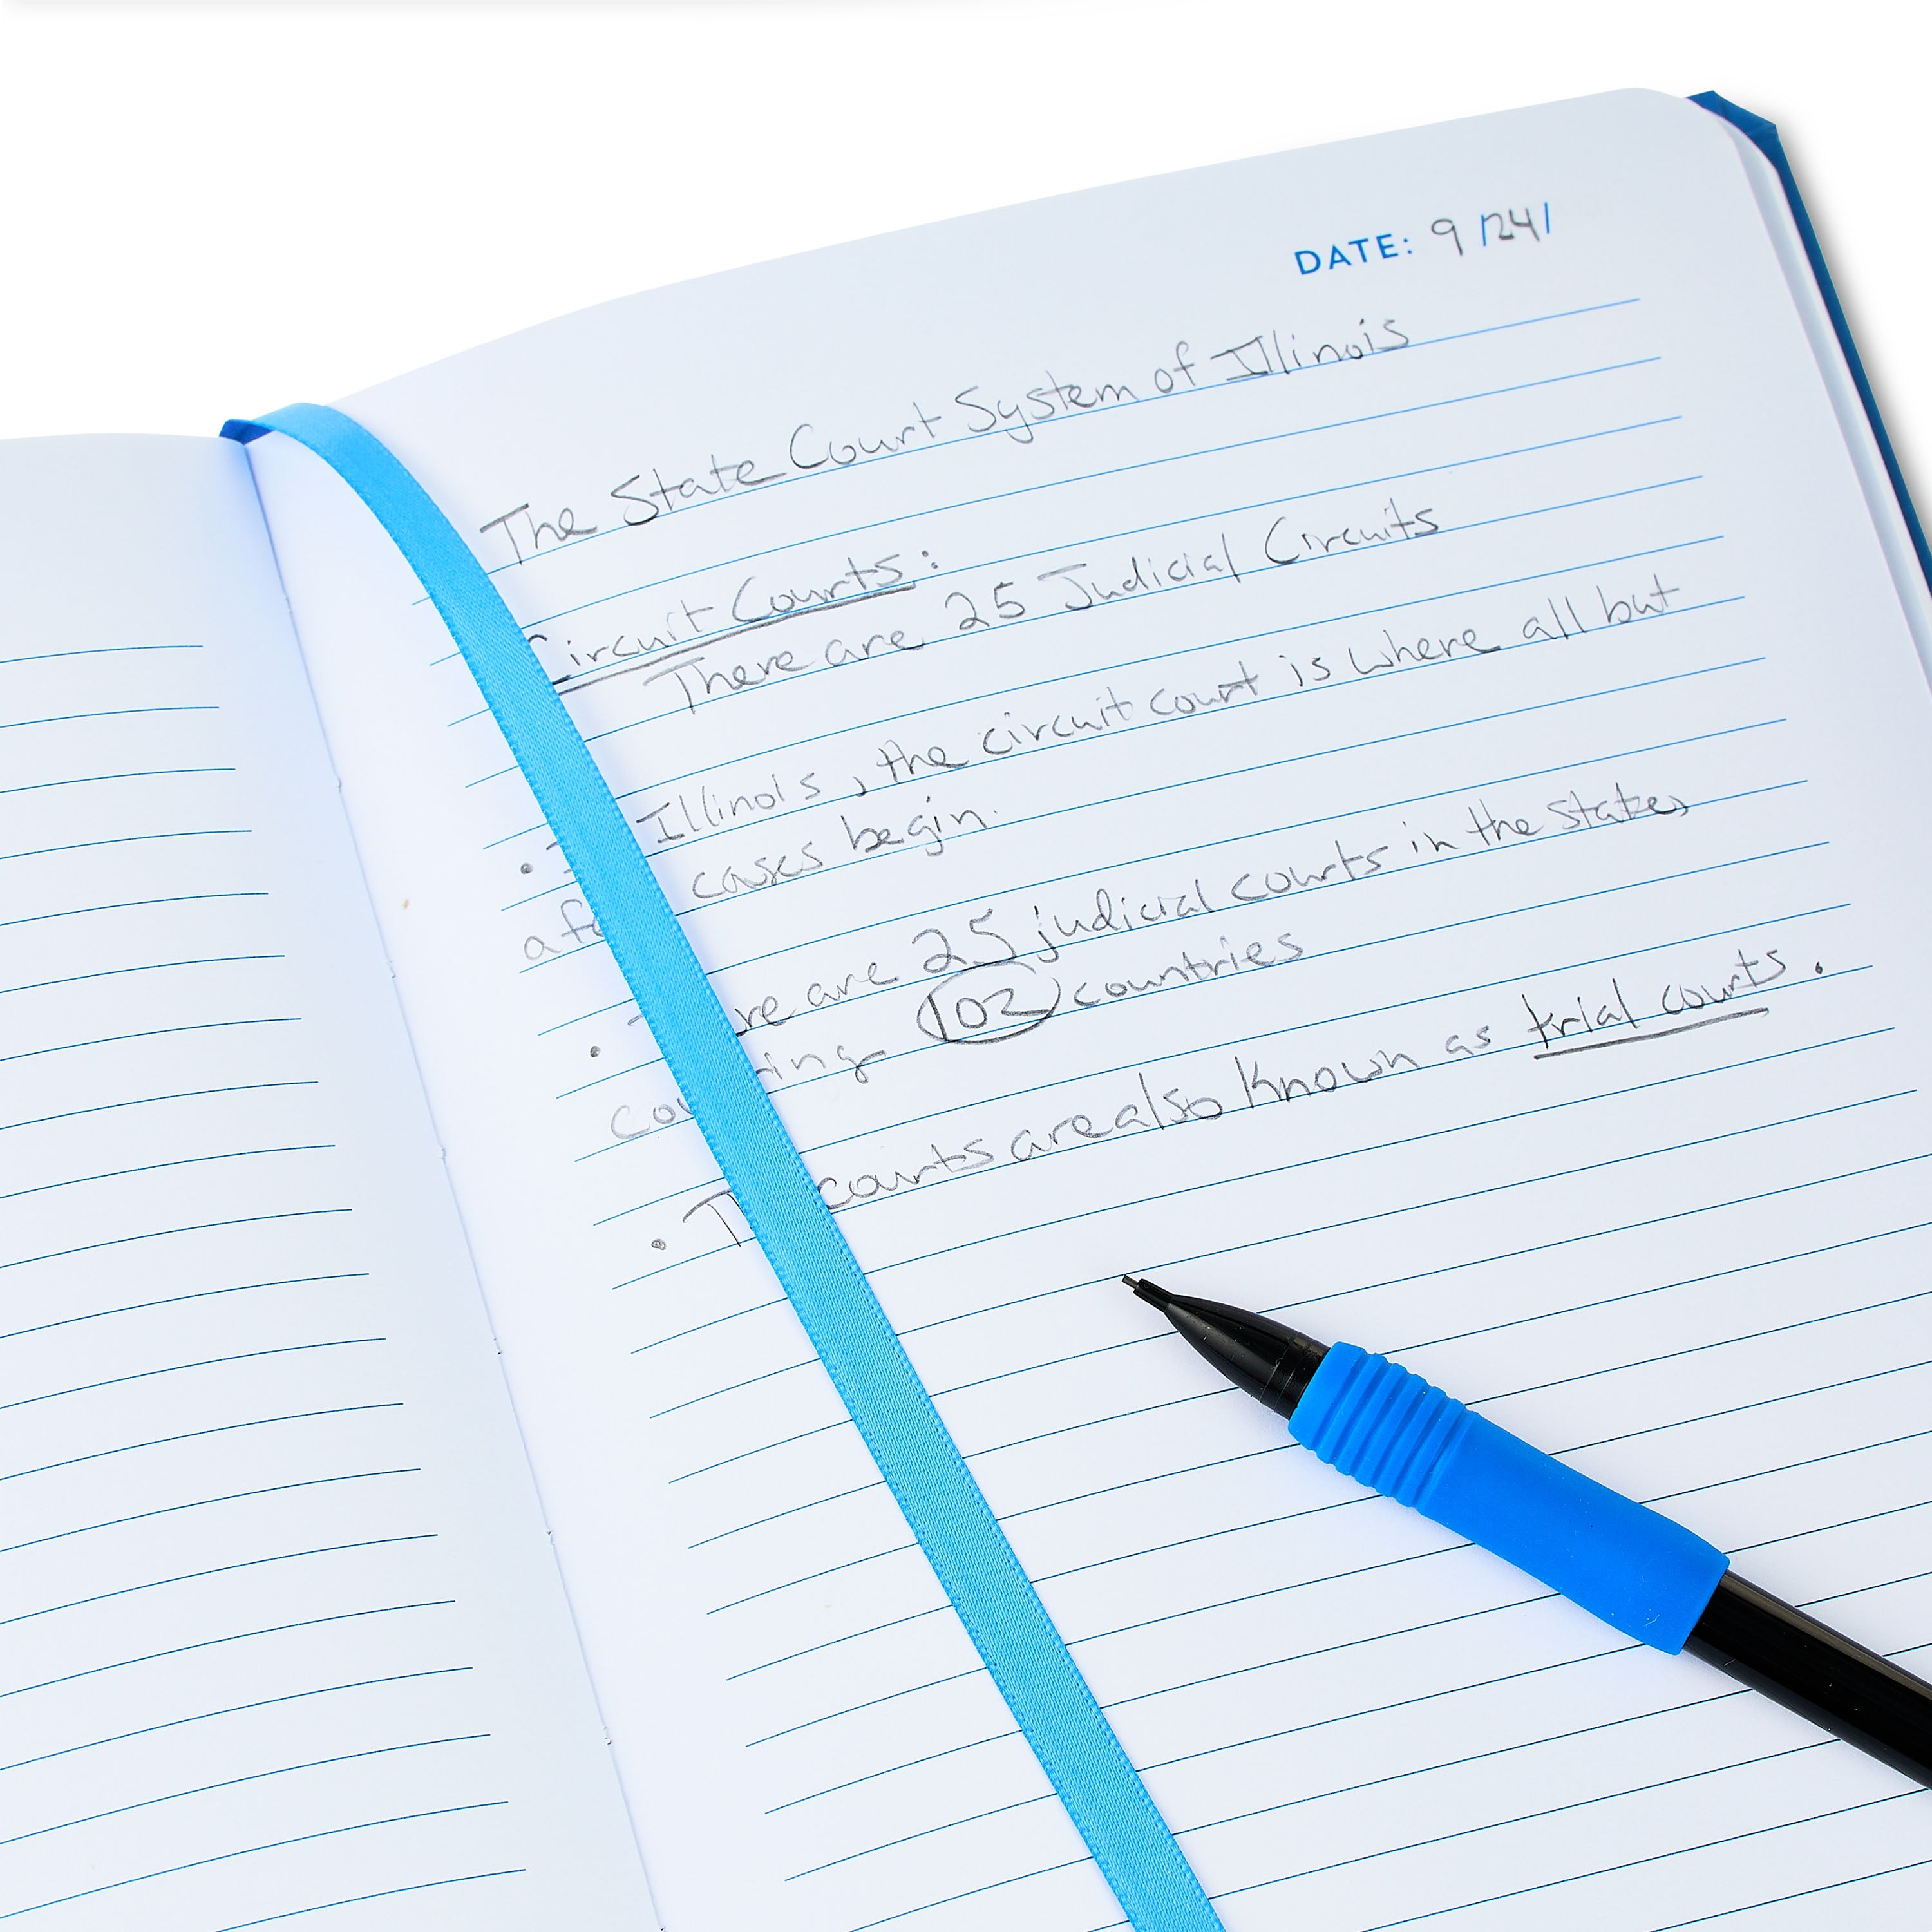 DATE: 9/24/
The State Court System of Illinois
Circuit Courts:
There are 25 Judicial Circuits
• Illinois, the circuit court is where all but
cases begin.
• are 25 judicial courts in the state,
102 countries
• courts are also known as trial courts.